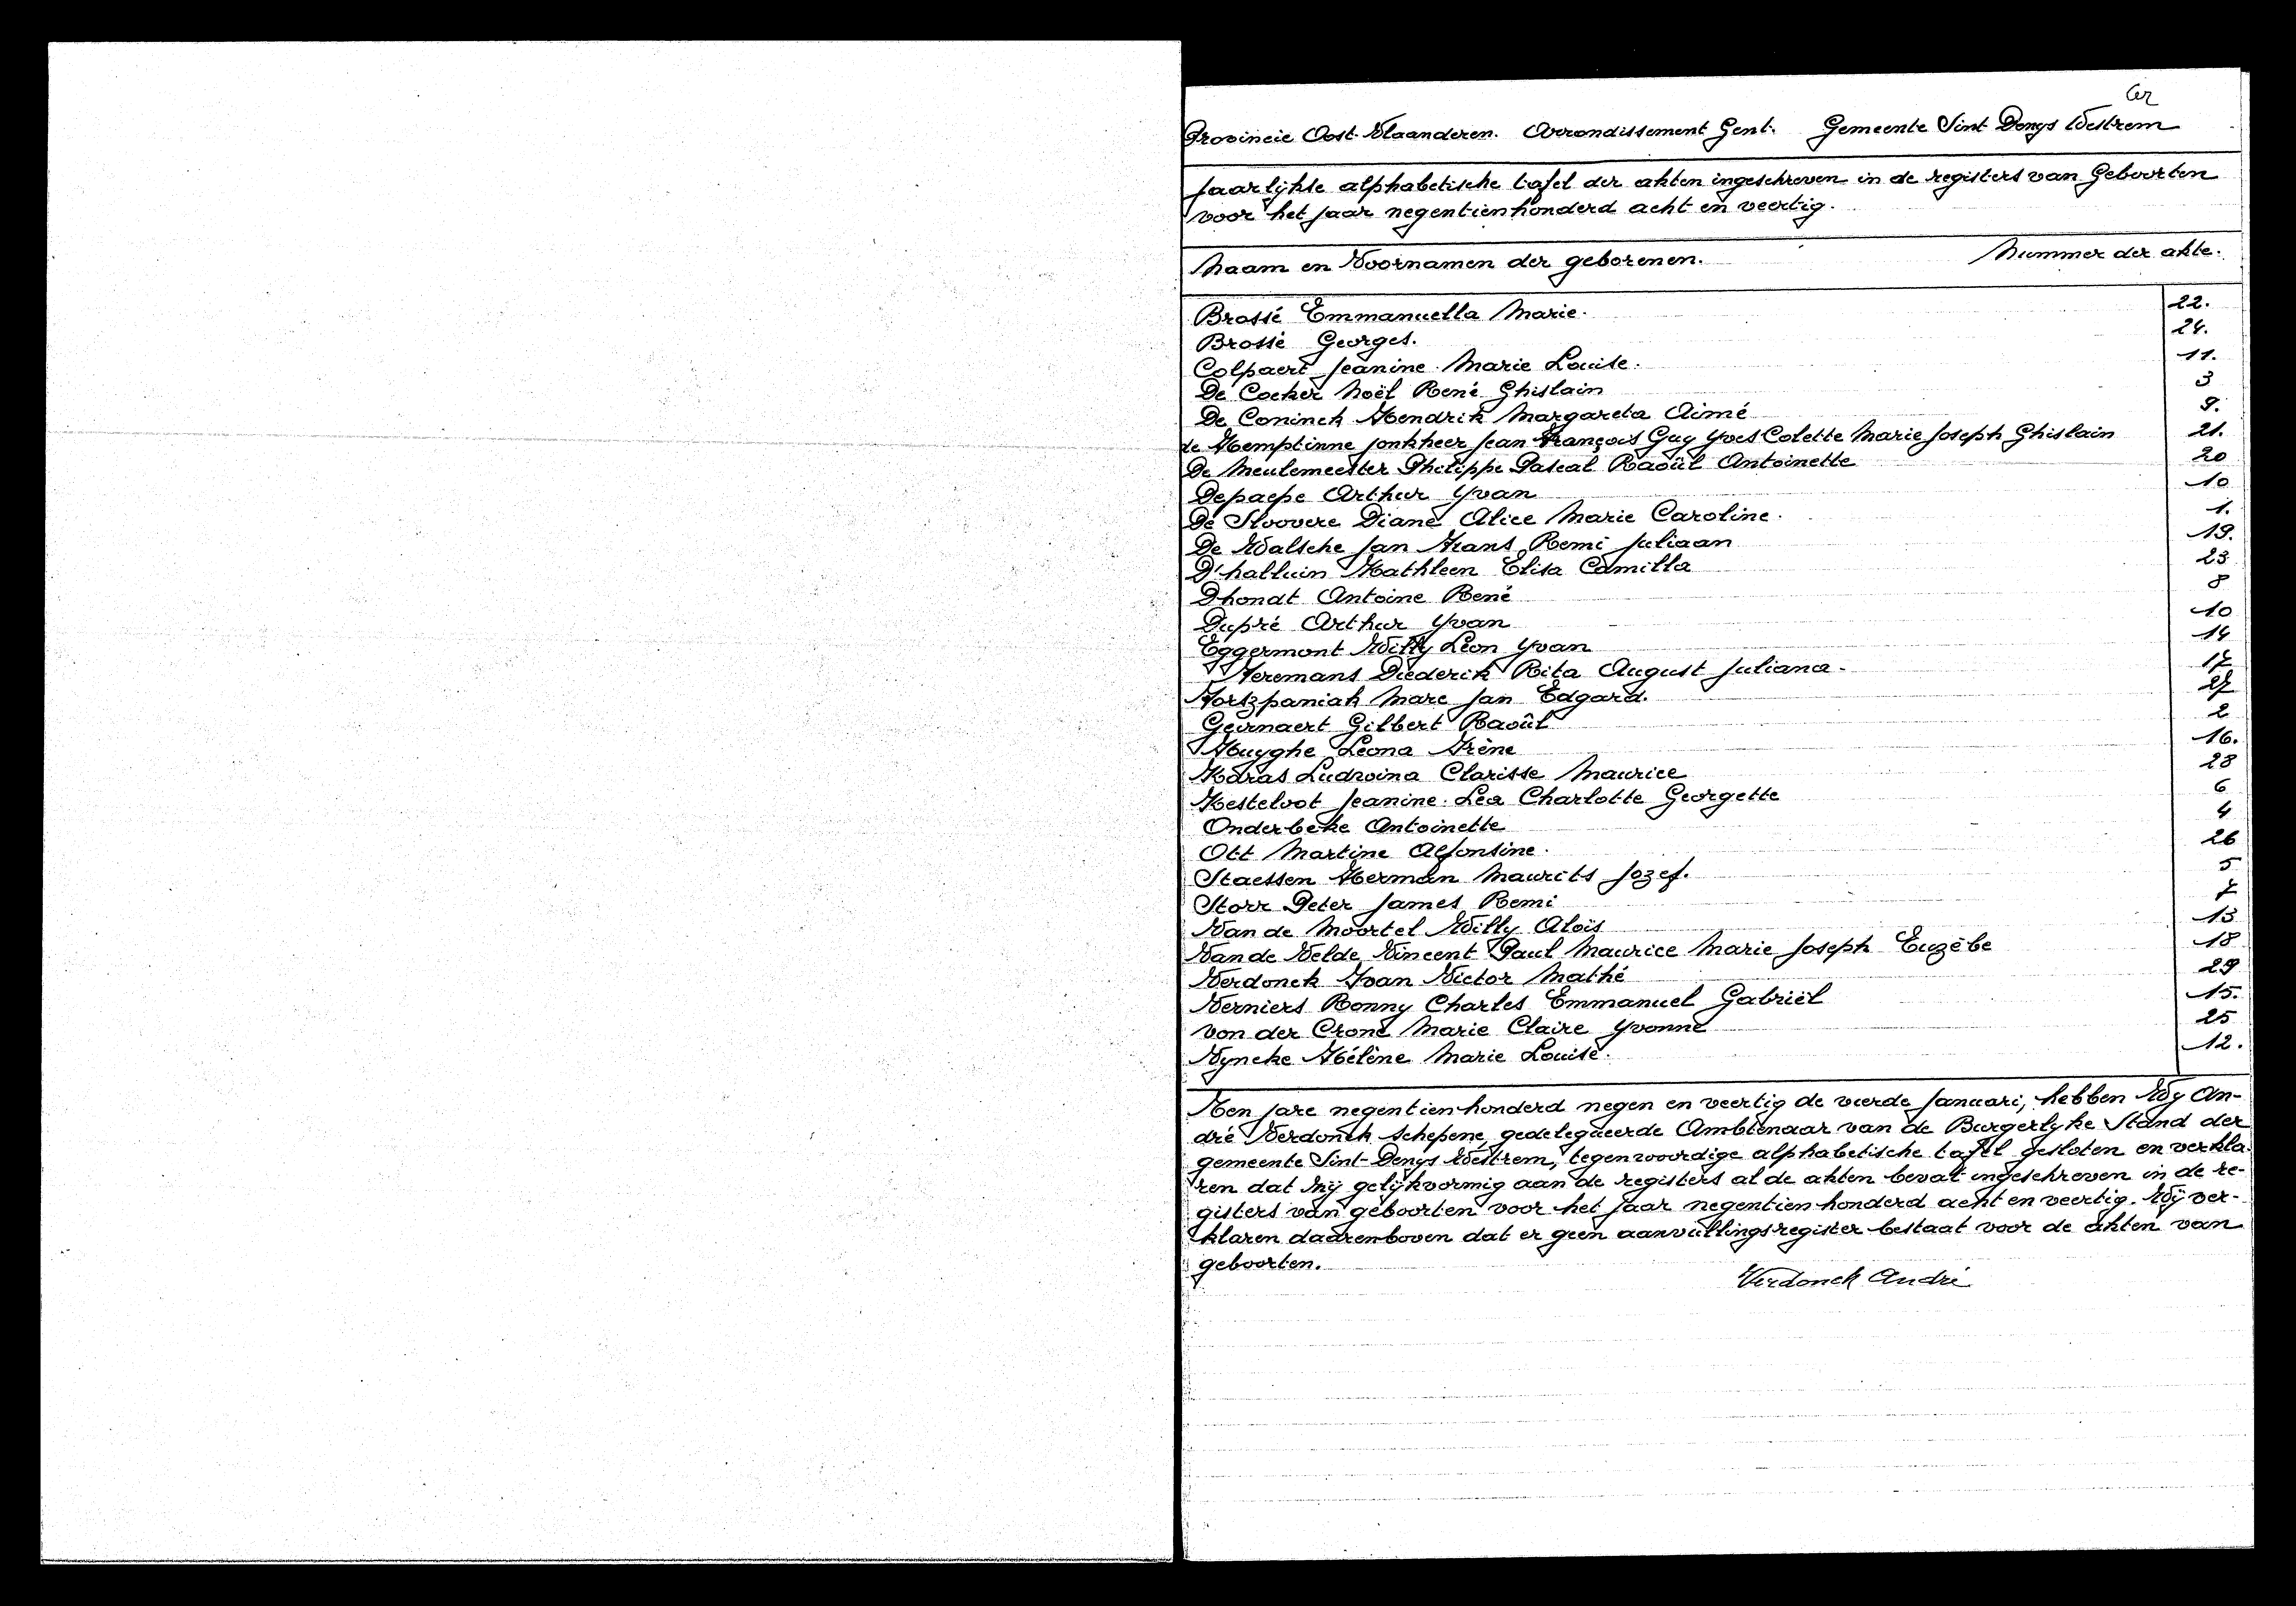 Provincie Oost-Vlaanderen. Arrondissement Gent. Gemeente Sint Denys Westrem
Jaarlijkse alphabetische tafel der akten ingeschreven in de registers van Geboorten
voor het jaar negentienhonderd acht en veertig.
Naam en Voornamen der geborenen. Nummer der akte.
Brossé Emmanuella Marie. 22.
Brossé Georges. 24.
Colpaert Jeanine Marie Louise. 11.
De Cocker Noël René Ghislain 3
De Coninck Hendrik Margareta Aimé 9.
de Hemptinne jonkheer Jean François Guy Yves Colette Marie Joseph Ghislain 21.
De Meulemeester Philippe Pascal Raoûl Antoinette 20
Depaepe Arthur Yvan 10
De Sloovere Diane Alice Marie Caroline. 1.
De Walsche Jan Frans Remi Juliaan 19.
D'halluin Kathleen Elisa Camilla 23
Dhondt Antoine René 8
Dupré Arthur Yvan 10
Eggermont Willy Léon Yvan 14
Heremans Diederik Rita August Juliana. 17
Forszpaniak Marc Jan Edgard. 27
Geirnaert Gilbert Raoûl 2
Huyghe Leona Irène 16.
Karas Ludwina Clarisse Maurice 28
Kesteloot Jeanine Lea Charlotte Georgette 6
Onderbeke Antoinette 4
Ott Martine Alfonsine. 26
Staessen Herman Maurits Jozef. 5
Storr Peter James Remi 7
Van de Moortel Willy Aloïs 13
Van de Velde Vincent Paul Maurice Marie Joseph Euzèbe 18
Verdonck Ivan Victor Mathé 29
Verniers Ronny Charles Emmanuel Gabriël 15.
von der Crone Marie Claire Yvonne 25
Vyncke Hélène Marie Louise. 12.
Ten jare negentienhonderd negen en veertig de vierde Januari, hebben Wy An-
dré Verdonck schepene, gedelegueerde Ambtenaar van de Burgerlyke Stand der
gemeente Sint-Denys Westrem, tegenwoordige alphabetische tafel gesloten en verkla-
ren dat zij gelijkvormig aan de registers al de akten bevat ingeschreven in de re-
gisters van geboorten voor het jaar negentienhonderd acht en veertig. Wij ver-
klaren daarenboven dat er geen aanvullingsregister bestaat voor de akten van
geboorten.
Verdonck André